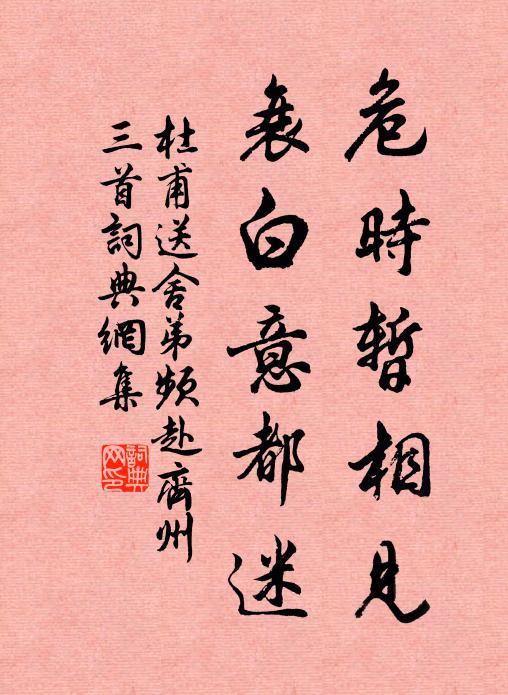 危時暫相見
衰白意都迷
杜甫送舍弟頻赴齊州
三首詞典網集
詞典
网印